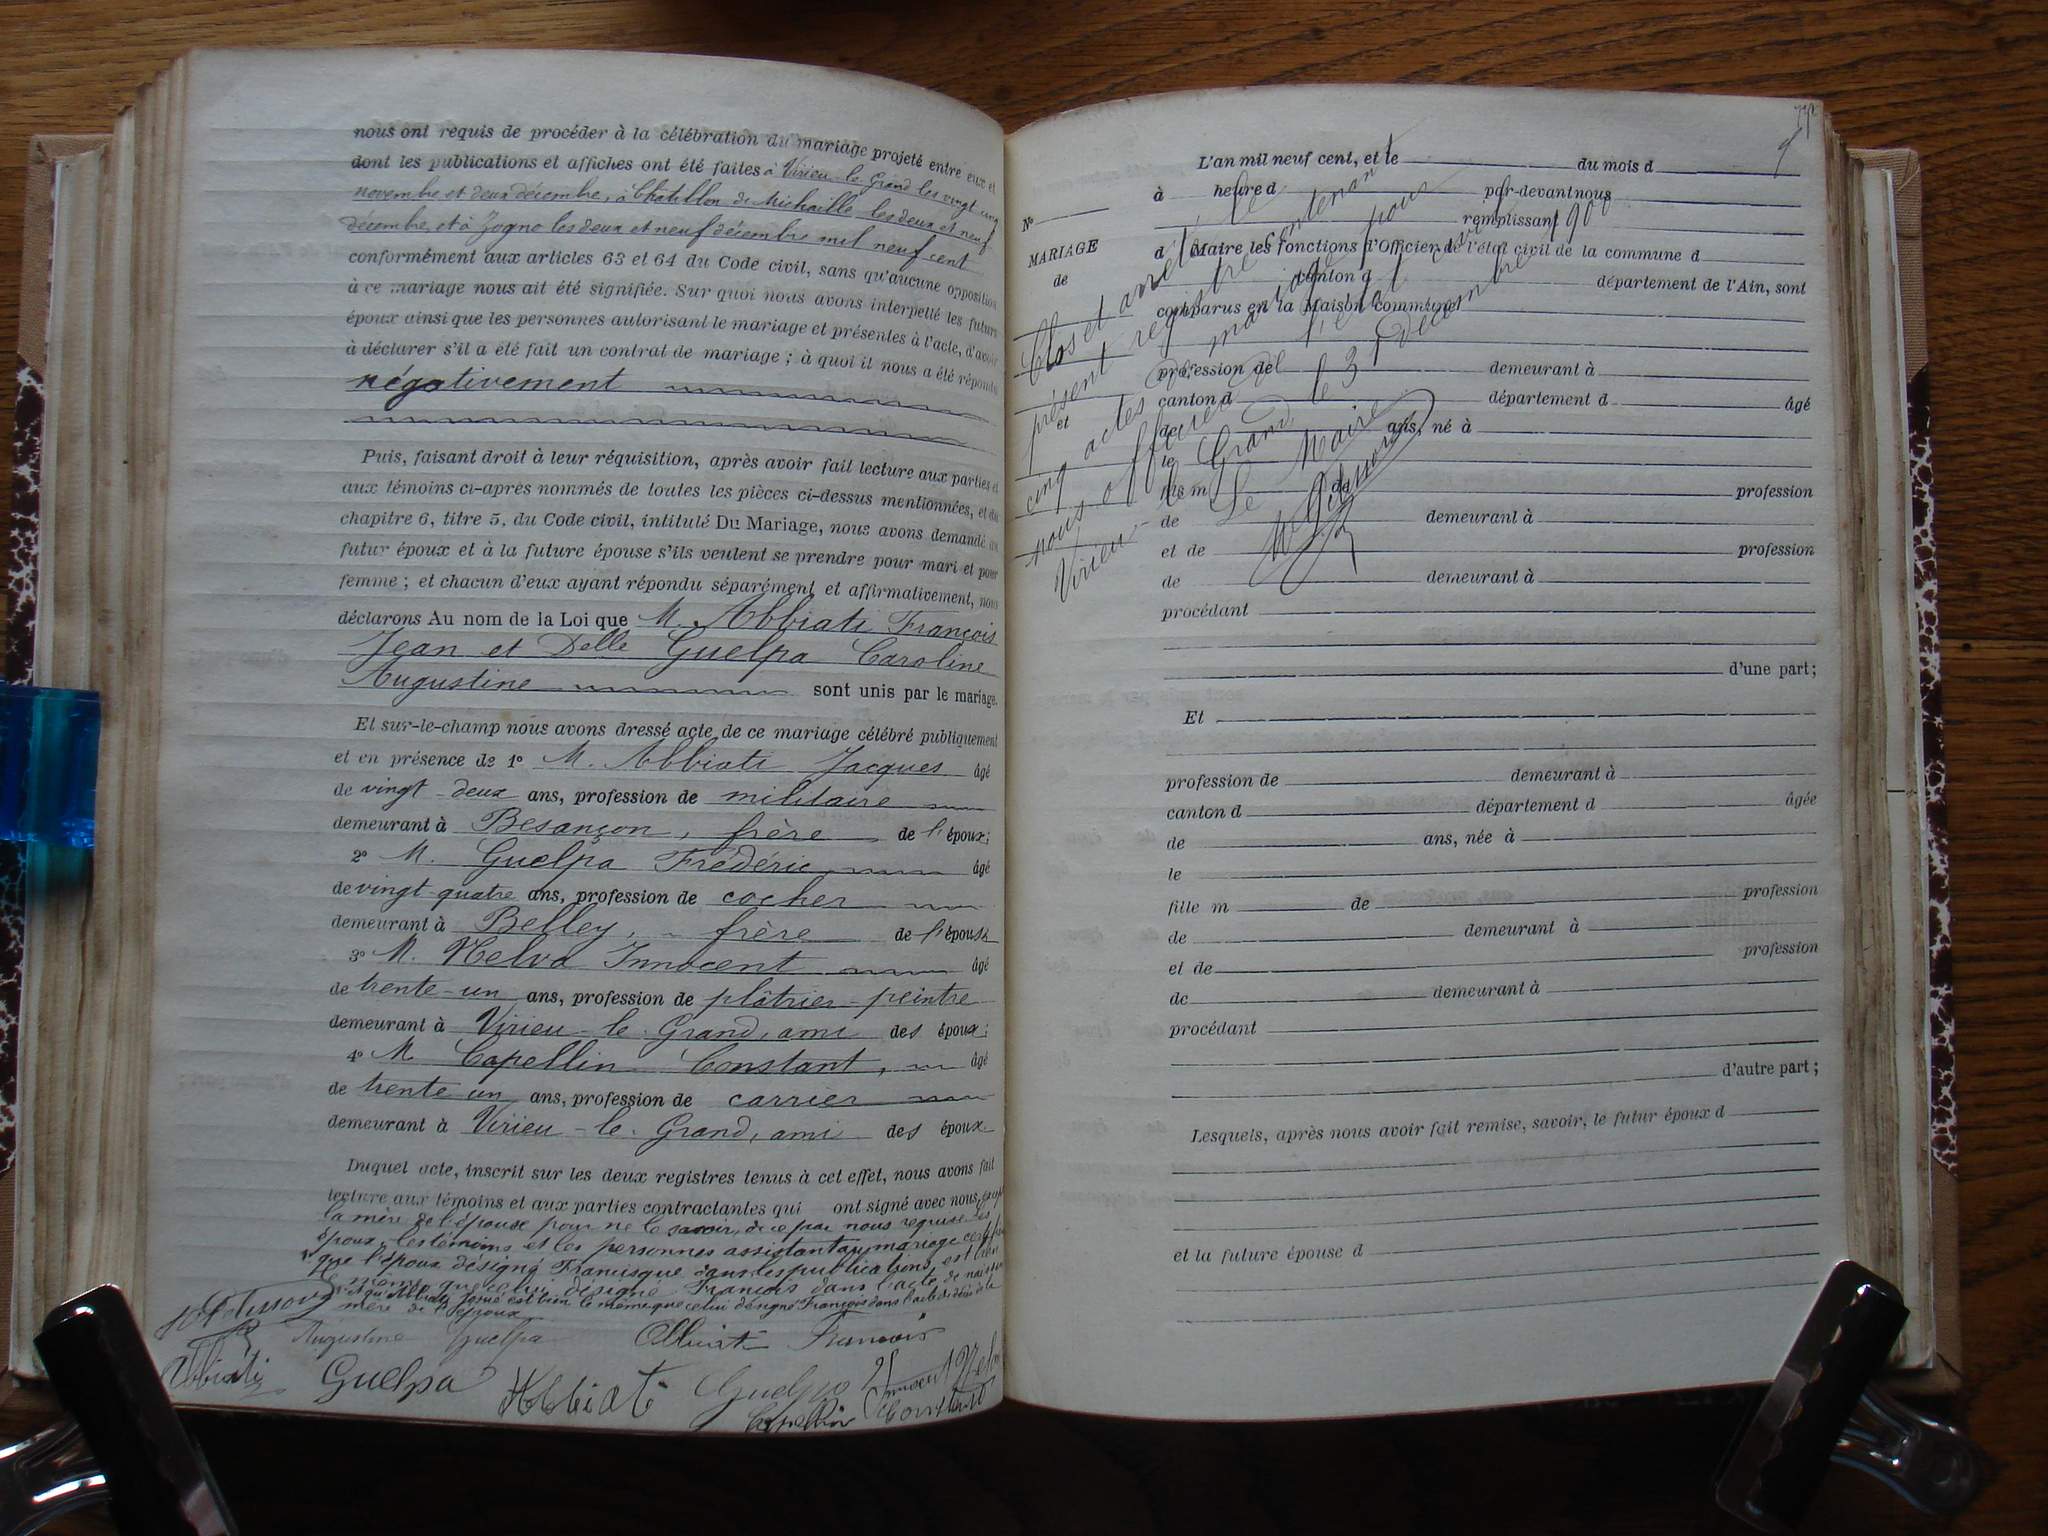 nous ont requis de procéder à la célébration du mariage projeté entre eux et
dont les publications et affiches ont été faites à Virieu-le-Grand les vingt cinq
novembre et deux décembre, à Châtillon de Michaille les deux et neuf
décembre, et à Zogno les deux et neuf décembre mil neuf cent
conformément aux articles 63 et 64 du Code civil, sans qu'aucune opposition
à ce mariage nous ait été signifiée. Sur quoi nous avons interpellé les futurs
époux ainsi que les personnes autorisant le mariage et présentes à l'acte, d'avoir
à déclarer s'il a été fait un contrat de mariage ; à quoi il nous a été répondu
négativement
Puis, faisant droit à leur réquisition, après avoir fait lecture aux parties et
aux témoins ci-après nommés de toutes les pièces ci-dessus mentionnées, et du
chapitre 6, titre 5, du Code civil, intitulé Du Mariage, nous avons demandé au
futur époux et à la future épouse s'ils veulent se prendre pour mari et pour
femme ; et chacun d'eux ayant répondu séparément et affirmativement, nous
déclarons Au nom de la Loi que M. Abbiati François
Jean et Delle Guelpa Caroline
Augustine sont unis par le mariage.
Et sur-le-champ nous avons dressé acte de ce mariage célébré publiquement
et en présence de 1° M. Abbiati Jacques âgé
de vingt-deux ans, profession de militaire
demeurant à Besançon, frère de l'époux;
2° M. Guelpa Frédéric âgé
de vingt-quatre ans, profession de cocher
demeurant à Belley, frère de l'épouse
3° M. Nelva Innocent âgé
de trente-un ans, profession de plâtrier-peintre
demeurant à Virieu-le-Grand, ami des époux;
4° M. Capellin Constant, âgé
de trente un ans, profession de carrier
demeurant à Virieu-le-Grand, ami des époux
Duquel acte, inscrit sur les deux registres tenus à cet effet, nous avons fait
lecture aux témoins et aux parties contractantes qui ont signé avec nous, excepté
la mère de l'épouse pour ne le savoir, de ce par nous requise. Les
époux, les témoins et les personnes assistant au mariage
que l'époux désigné Francisque dans les publications, est bien
le même que celui désigné François dans l'acte de
est bien le même que celui désigné François dans l'acte de décès de la
mère de l'époux
Augustine Guelpa Abbiati François
Abbiati Guelpa Abbiati Guelpa
Capellin Constant
9
L'an mil neuf cent, et le du mois d
à heure d par-devant nous
N° remplissant
MARIAGE d Maire les fonctions d'Officier de l'état civil de la commune d
de canton d département de l'Ain, sont
comparus en la Maison commune
profession de demeurant à
canton d département d âgé
et de ans, né à
le
fils m de profession
de demeurant à
et de profession
de demeurant à
procédant
d'une part;
Clos et arrêté le
présent registre contenant
cinq actes de mariage pour
nous officier de l'état
Virieu-le-Grand, le 31 décembre 1900
Le Maire
Et
profession de demeurant à
canton d département d âgée
de ans, née à
le
fille m de profession
de demeurant à
et de profession
de demeurant à
procédant
d'autre part;
Lesquels, après nous avoir fait remise, savoir, le futur époux d
et la future épouse d